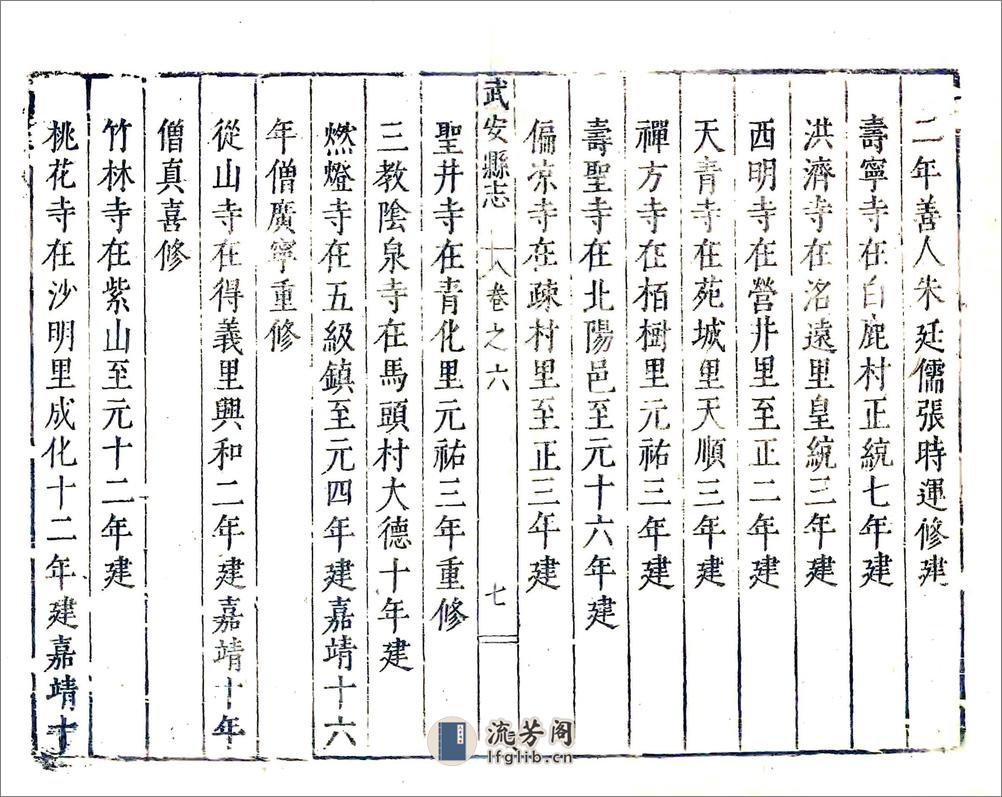 二年善人朱廷儒張時運修建
壽寧寺在白鹿村正統七年建
洪濟寺在洺遠里皇統三年建
西明寺在營井里至正二年建
天青寺在苑城里天順三年建
禪方寺在栢樹里元祐三年建
壽聖寺在北陽邑至元十六年建
偏凉寺在疎村里至正三年建
武安縣志 卷之六 七
聖井寺在青化里元祐三年重修
三教陰泉寺在馬頭村大德十年建
燃燈寺在五級鎮至元四年建嘉靖十六
年僧廣寧重修
從山寺在得義里興和二年建嘉靖十年
僧真喜修
竹林寺在紫山至元十二年建
桃花寺在沙明里成化十二年建嘉靖十
流芳阁
lfglib.cn